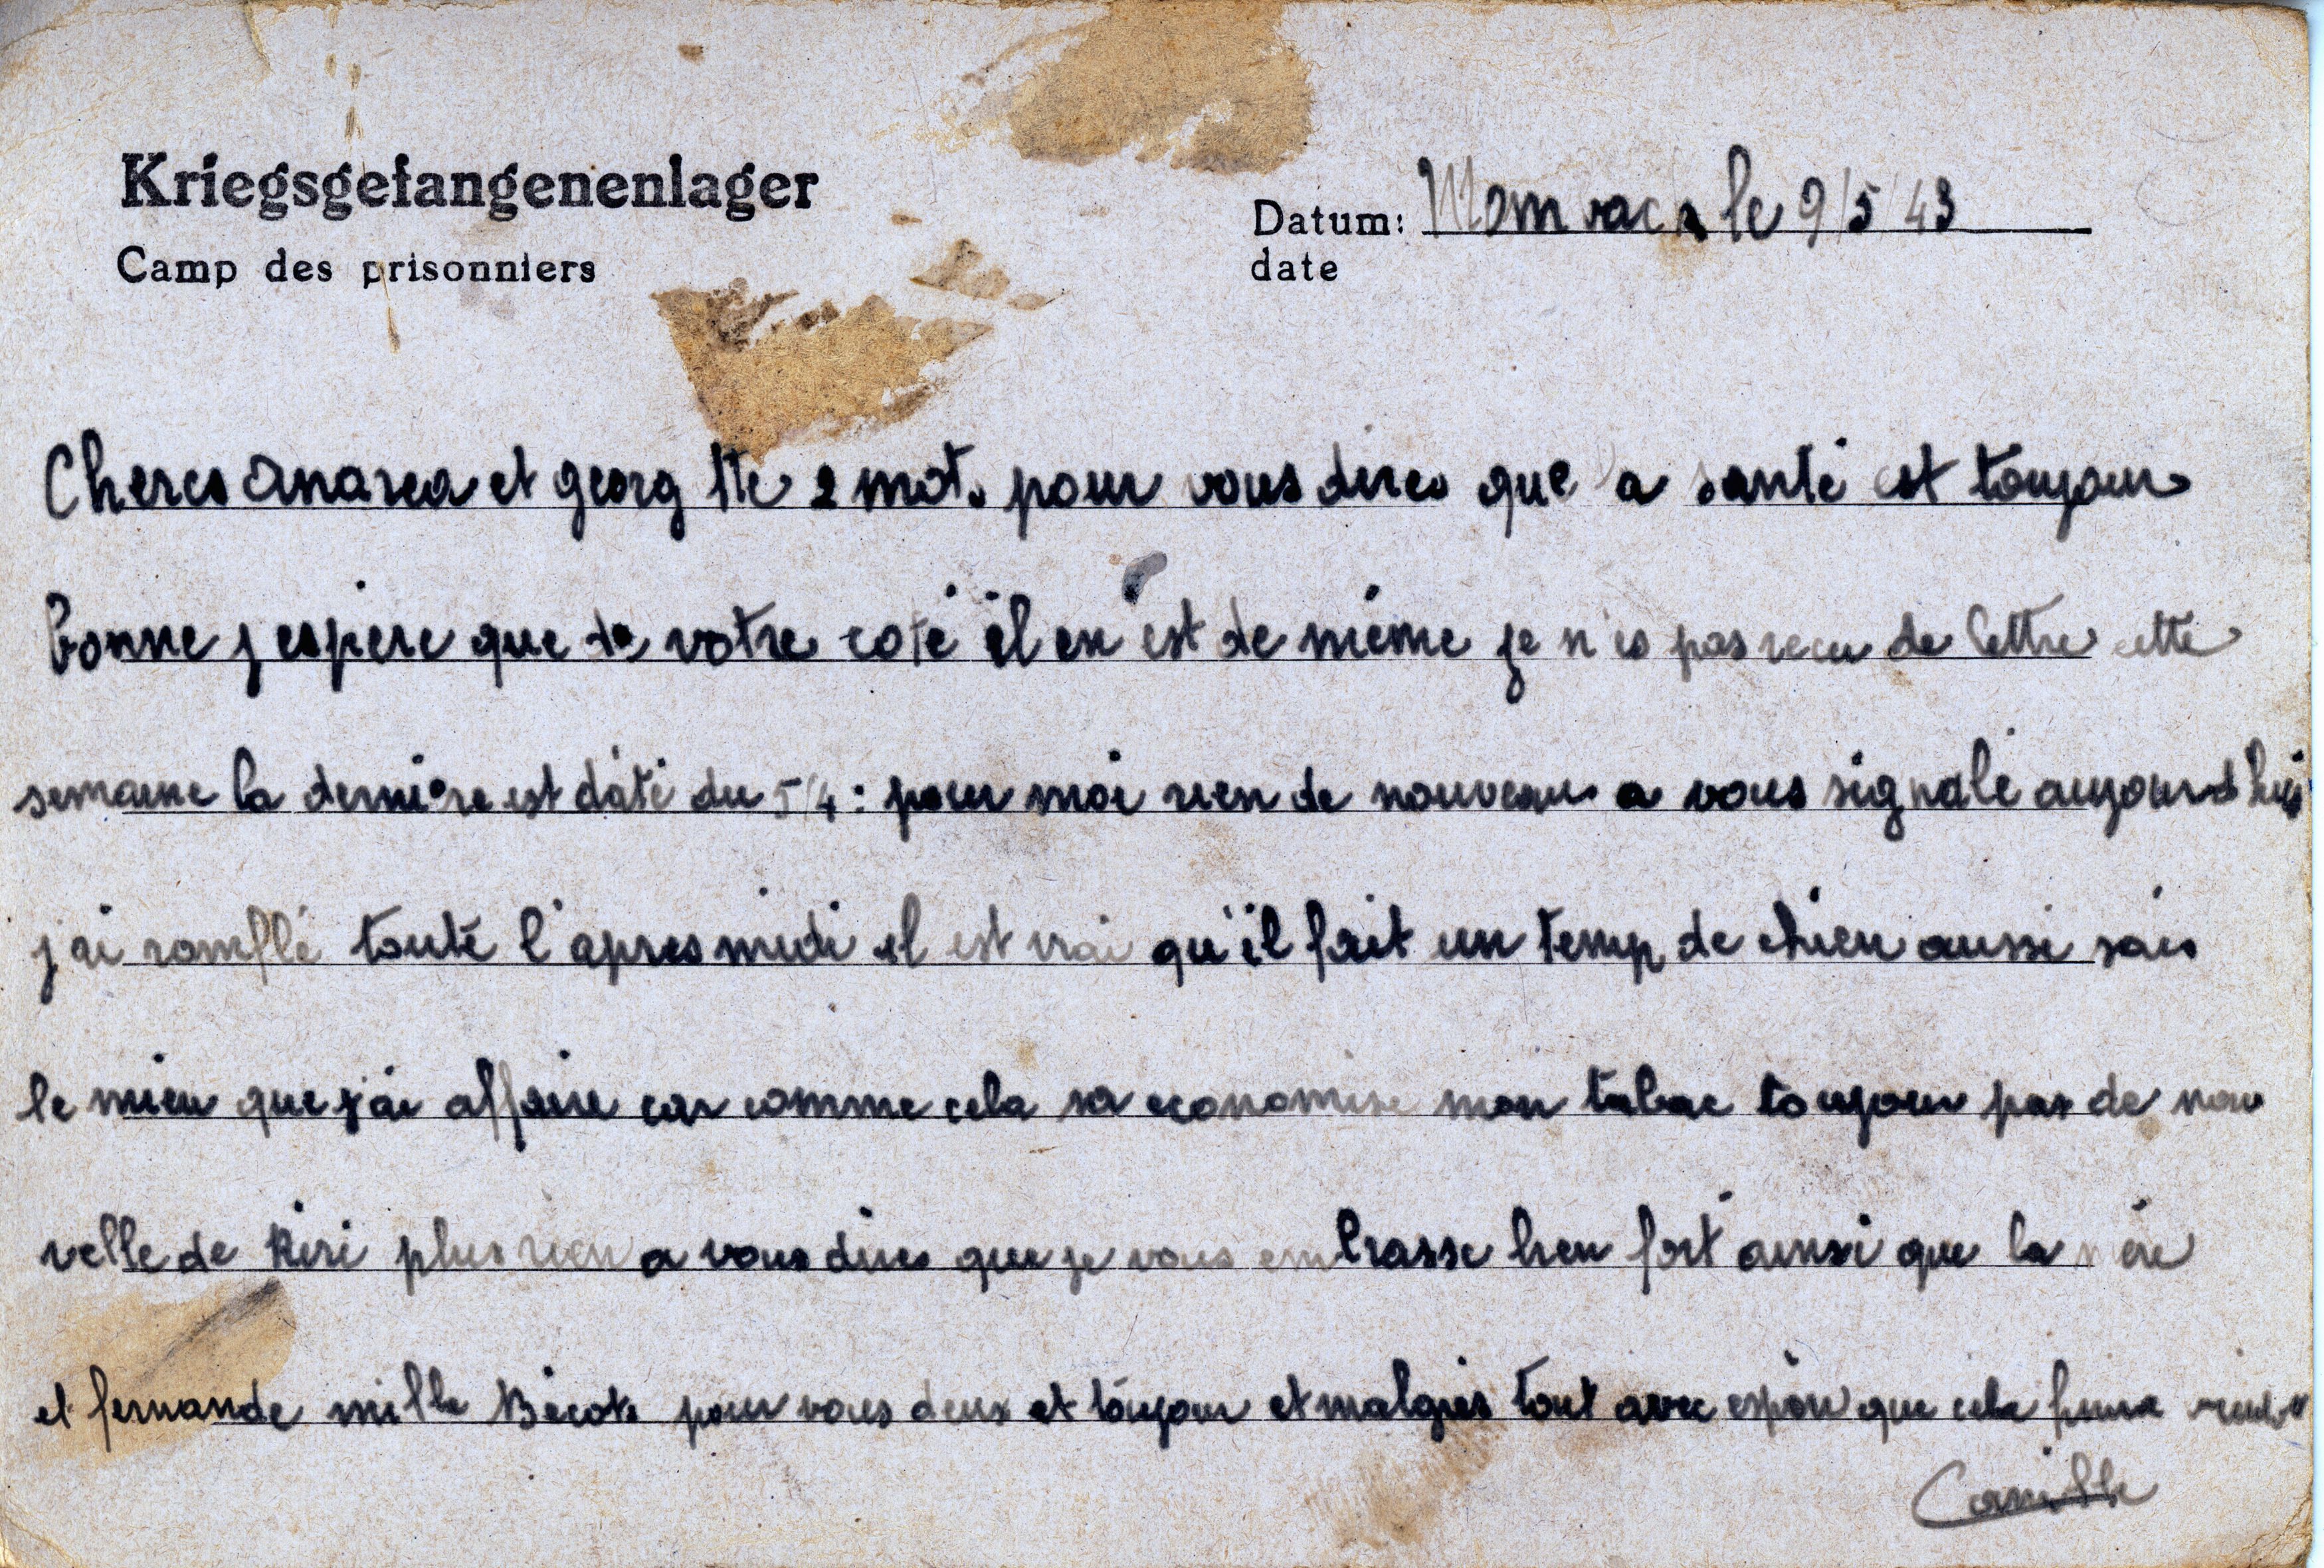 Kriegsgefangenenlager
Camp des prisonniers
Datum: le 9/5/43
date
Cheres et georg tte 2 mots pour vous dires que a santé est toujours
bonne j espere que de votre coté il en est de même je n'es pas recu de lettre cette
semaine la derniere est daté du 5/4: pour moi rien de nouveau a vous signalé aujourd'hui
j'ai romflé toute l'apres midi il est vrai qu'il fait un temp de chien aussi sais
le mieu que j'ai affaire car comme cela sa economise mon tabac toujour pas de nou
velle de Riri plus rien a vous dires que je vous embrasse bien fort ainsi que la mère
et fernande mille Bécots pour vous deux et toujour et malgres tout avec espoir que cela finira
Camille